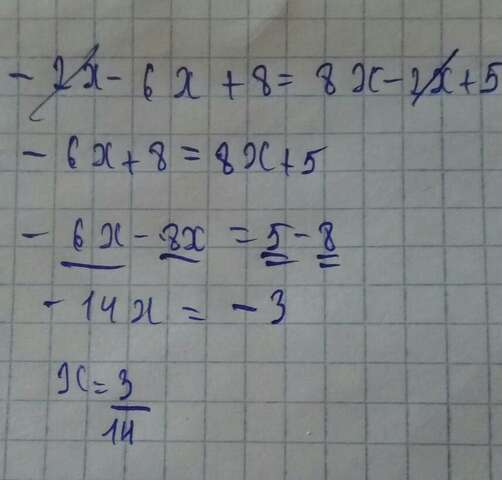 - 2x - 6x + 8 = 8x - 2x + 5
- 6x + 8 = 8x + 5
- 6x - 8x = 5 - 8
- 14x = - 3
x = 3/14